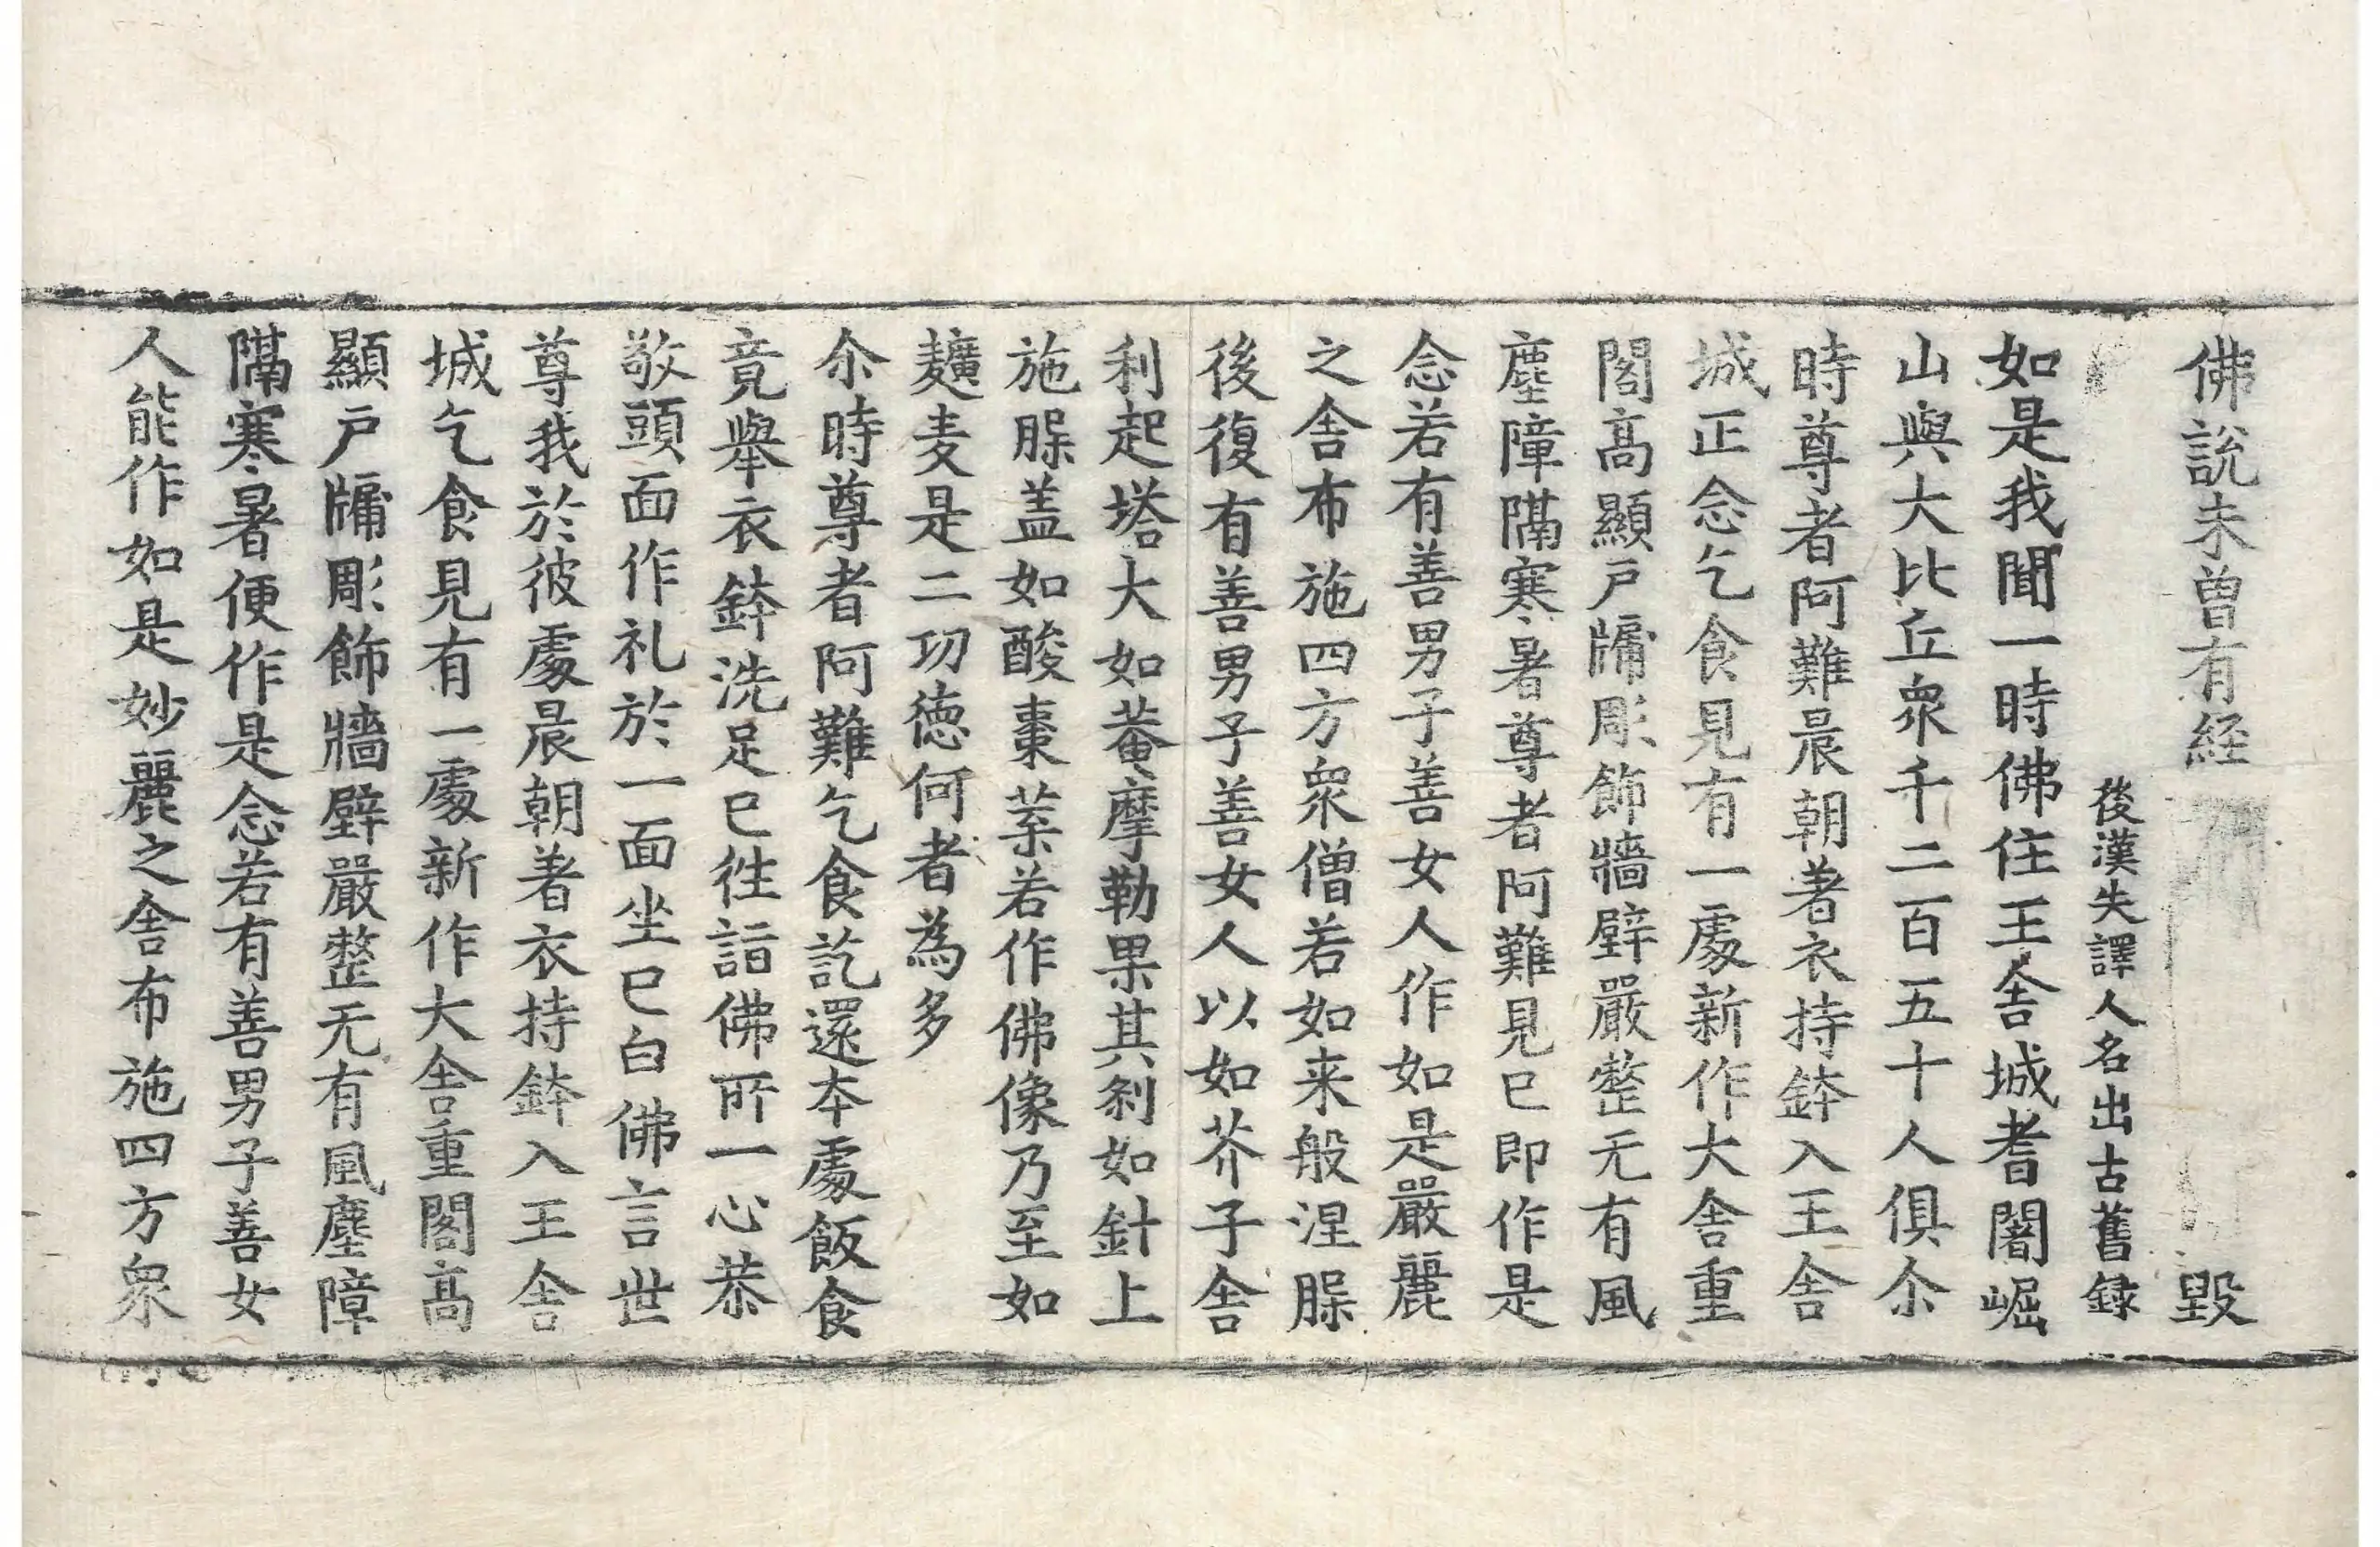 佛說未曾有經 毀
後漢失譯人名出古舊録
如是我聞一時佛住王舍城耆闍崛
山與大比丘衆千二百五十人俱尒
時尊者阿難晨朝著衣持鉢入王舎
城正念乞食見有一處新作大舎重
閣髙顯戸牖彫飾牆壁嚴整无有風
塵障隔寒暑尊者阿難見已即作是
念若有善男子善女人作如是嚴麗
之舎布施四方衆僧若如来般涅槃
後復有善男子善女人以如芥子舎
利起塔大如菴摩勒果其刹如針上
施槃盖如酸棗葉若作佛像乃至如
麸麦是二功德何者為多
尒時尊者阿難乞食訖還本處飯食
竟舉衣鉢洗足已徃詣佛所一心恭
敬頭面作礼於一面坐已白佛言世
尊我於彼處晨朝著衣持鉢入王舎
城乞食見有一處新作大舎重閣髙
顯戸牖彫飾牆壁嚴整无有風塵障
隔寒暑便作是念若有善男子善女
人能作如是妙麗之舎布施四方衆